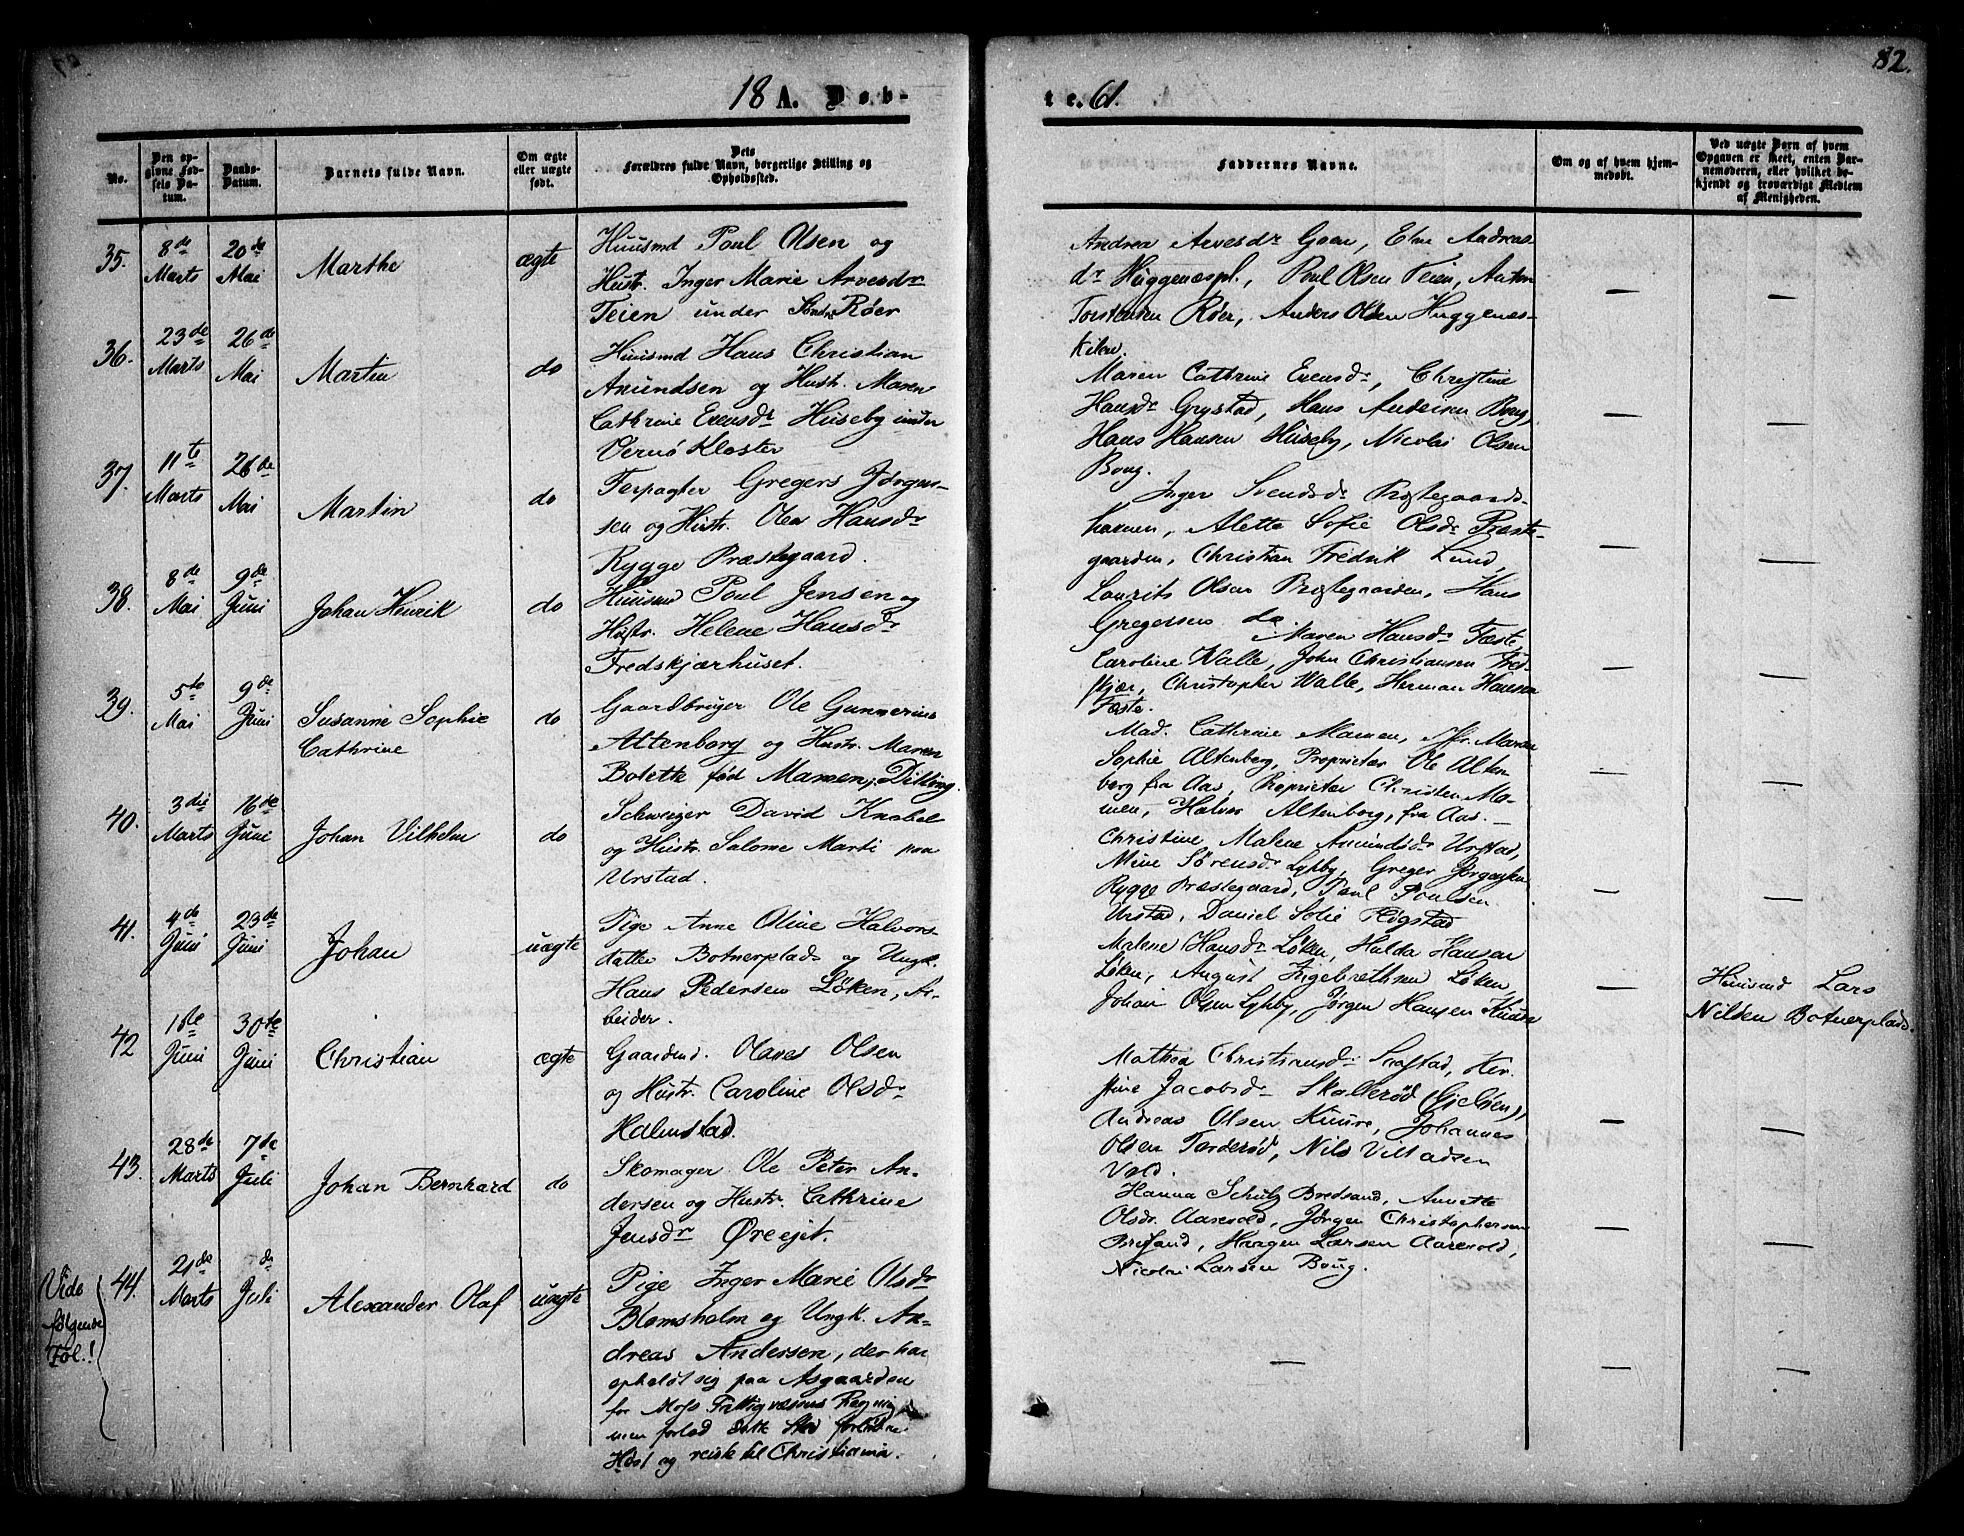 82.
18 A. Døb-
te. 61.
No.
Den op-
givne Fød-
sels Da-
tum.
Daabs-
Datum.
Barnets fulde Navn.
Om ægte
eller uægte
født.
Dets
Forældres fulde Navn, borgerlige Stilling og
Opholdssted.
Faddernes Navne.
Om og af hvem hjem-
medøbt.
Ved uægte Barn af hvem
Opgaven er skeet, enten Bar-
nemoderen, eller hvilket be-
kjendt og troværdigt Medlem
af Menigheden.
35.
8de
Marts
20de
Mai
Marthe
ægte
Huusmd Poul Olsen og
Hustr. Inger Marie Arvesdr
Teien under Søndr Røer
Andrea Arvesdr Goen, Elne Andreas
dr Huggenæspl., Poul Olsen Teien, Anton
Torstensen Røer, Anders Olsen Huggenæs-
kilen.
—
—
36.
23de
Marts
26de
Mai
Martin
do
Huusmd Hans Christian
Amundsen og Hustr. Maren
Cathrine Evensdr Huseby under
Vernø Kloster
Maren Cathrine Evensdr, Christine
Hansdr Grystad, Hans Andersen Boug,
Hans Hansen Huseby, Nicolai Olsen
Boug.
—
—
37.
11te
Marts
26de
Mai
Martin
do
Forpagter Gregers Jørgen-
sen og Hustr. Olea Hansdr
Rygge Præstegaard.
Inger Svendsdr Præstegaards-
, Alette Sofie Olsdr Præste-
gaarden, Christian Fredrik Lund,
Laurits Olsen Præstegaarden, Hans
Gregersen do.
—
—
38.
8de
Mai
9de
Juni
Johan Henrik
do
Huusmd Poul Jensen og
Hustr. Helene Hansdr
Fredskjærhuset.
Maren Hansdr Fæste,
Caroline Walle, John Christiansen Fred-
skjær, Christopher Walle, Herman Hansen
Fæste.
—
—
39.
5te
Mai
9de
Juni
Susanne Sophie
Cathrine
do
Gaardbruger Ole Gunnerius
Altenborg og Hustr. Maren
Bolette fød Mamen, Dilling.
Mad. Cathrine Mamen, Jfr. Maren
Sophie Altenborg, Proprietær Ole Alten
borg fra Aas, Proprietær Christen Ma-
men, Halvor Altenborg, fra Aas.
—
—
40.
3die
Marts
16de
Juni
Johan Vilhelm
do
Schweizer David Knobel
og Hustr. Salome Marti paa
Urstad.
Christine Malene Amundsdr Urstad,
Mine Sørensdr Lyhby, Greger Jørgensen
Rygge Præstegaard, Paul Poulsen
Urstad, Daniel Solie Røgstad
—
—
41.
4de
Juni
23de
Juni
Johan
uægte
Pige Anne Oline Halvors-
datter Botnerplads og Ungk.
Hans Pedersen Løken, Ar-
beider.
Malene Hansdr Løken, Hulda Hansen
Løken, August Ingebrethsen Løken,
Johan Olsen Lyhby, Jørgen Hansen
—
Huusmd Lars
Nilsen Botnerplads.
42
1ste
Juni
30te
Juni
Christian
ægte
Gaardmd. Olaves Olsen
og Hustr. Caroline Olsdr
Halmstad.
Mathea Christiansdr , Ker-
stine Jacobsdr Skallerød (Gjelsten),
Andreas Olsen Kuure, Johannes
Olsen Tarderød, Nils Villadsen
Vold.
—
—
43.
28de
Marts
7de
Juli
Johan Bernhard
do
Skomager Ole Peter An-
dersen og Hustr. Cathrine
Jensdr Øreejet.
Hanna Schulz Bredsand, Annette
Olsdr. Aarevold, Jørgen Christophersen
Bredsand, Haagen Larsen Aarevold,
Nicolai Larsen Boug.
—
—
Vide
følgende
Fol.!
44.
21de
Marts
de
Juli
Alexander Olaf
uægte
Pige Inger Marie Olsdr
Blomsholm og Ungk. An-
dreas Andersen, der har
opholdt sig paa Asgaarden
for Moss Fattigvæsens Regning
men forlod dette Sted forledne
Høst og reiste til Christiania.
—
—
—